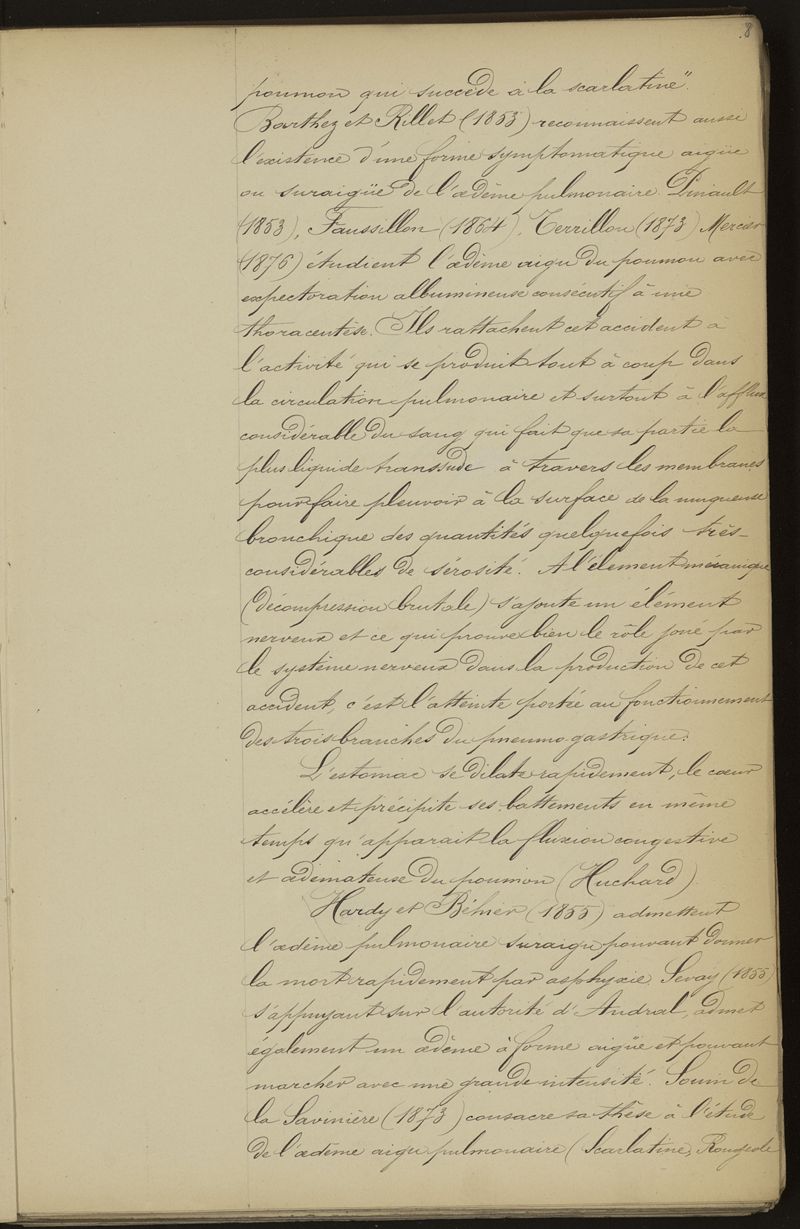 8
poumon qui succède à la scarlatine".
Barthez et Rillet (1853) reconnaissent aussi
l'existence d'une forme symptomatique aigüe
ou suraigüe de l'œdème pulmonaire. Pinault
(1853), Faussillon (1864), Terrillon (1873) Mercier
(1876) étudient l'œdème aigu du poumon avec
expectoration albumineuse consécutif à une
thoracentèse. Ils rattachent cet accident à
l'activité qui se produit tout à coup dans
la circulation pulmonaire et surtout à l'afflux
considérable du sang qui fait que sa partie la
plus liquide transsude à travers les membranes
pour faire pleuvoir à la surface de la muqueuse
bronchique des quantités quelquefois très-
considérables de sérosité. A l'élement mécanique
(décompression brutale) s'ajoute un élément
nerveux et ce qui prouve bien le rôle joué par
le système nerveux dans la production de cet
accident, c'est l'atteinte portée au fonctionnement
des trois branches du pneumogastrique.
L'estomac se dilate rapidement, le cœur
accélère et précipite ses battements en même
temps qu'apparait la fluxion congestive
et œdémateuse du poumon (Huchard)
Hardy et Béhier (1855) admettent
l'œdème pulmonaire suraigu pouvant donner
la mort rapidement par asphyxie. Sevay (1855)
s'appuyant sur l'autorité d'Andral, admet
également un œdème à forme aigüe et pouvant
marcher avec une grande intensité. Souin de
la Savinière (1873) consacre sa thèse à l'étude
de l'œdème aigu pulmonaire (Scarlatine, Rougeole